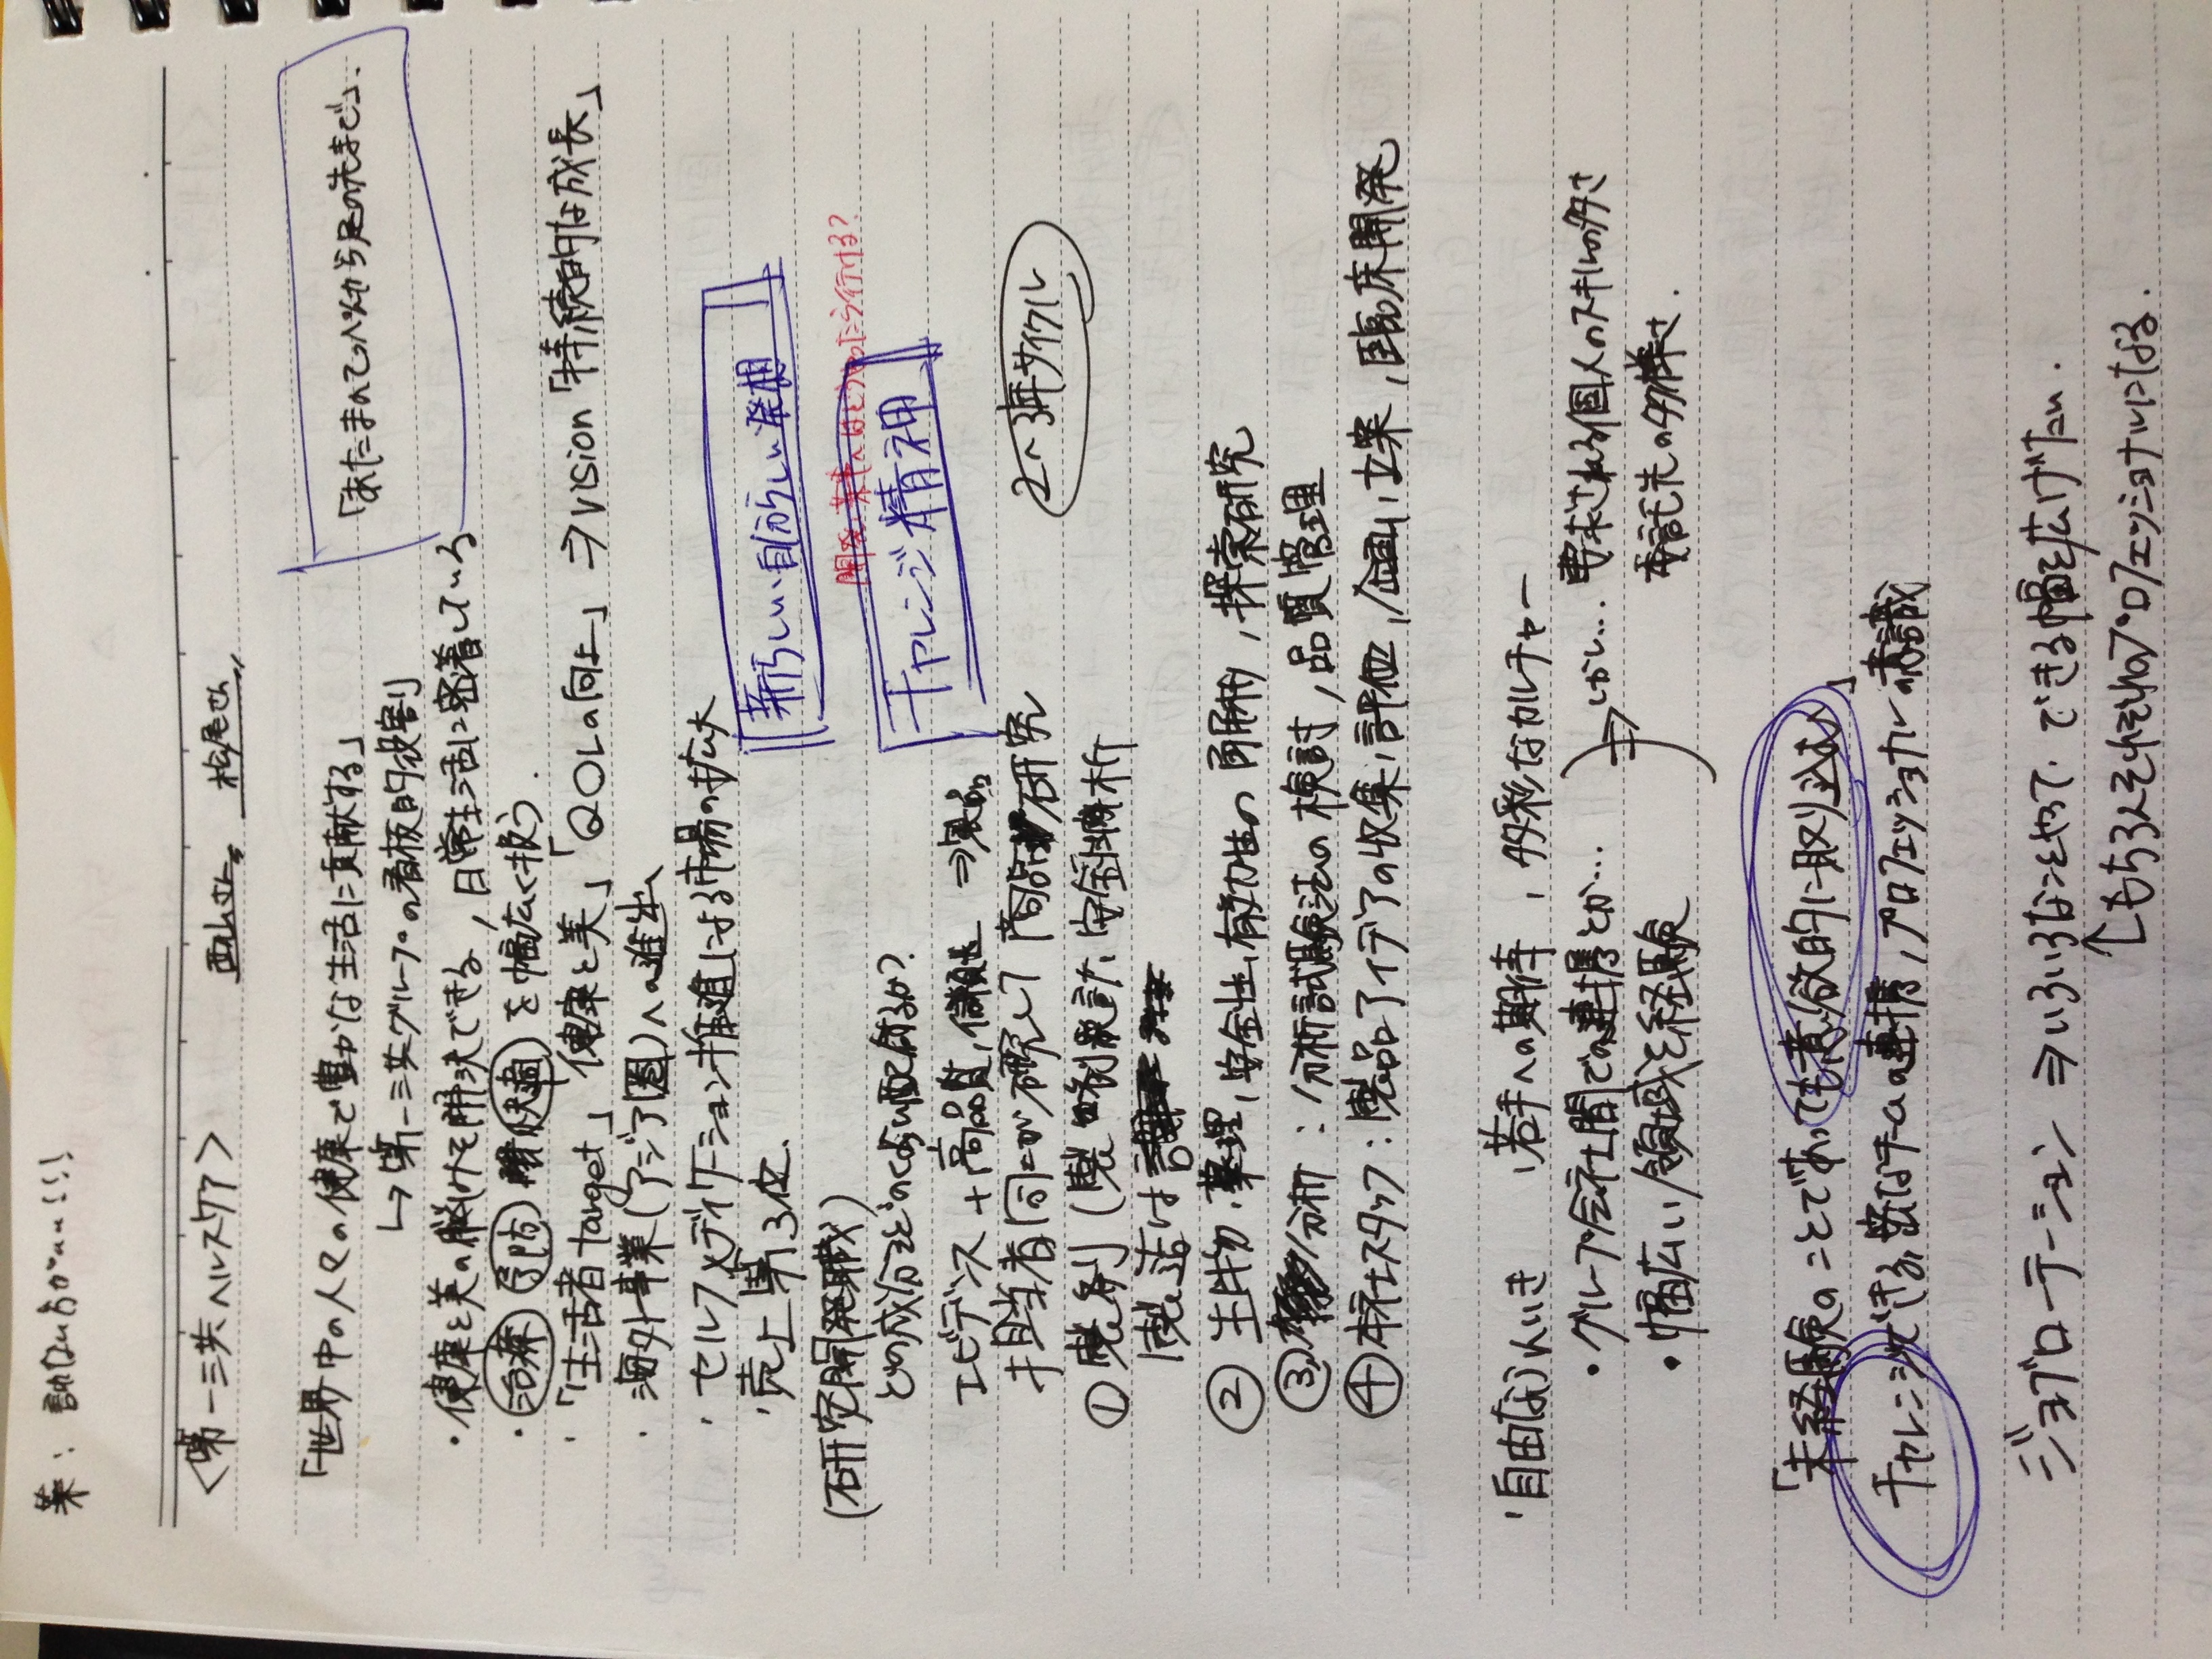 薬：飲ない方がいい!!!
＜第一三共ヘルスケア＞ 西山さん 松尾さん
「世界中の人々の健康で豊かな生活に貢献する」
「あたまのてっぺんから足の先まで」.
↳第一三共グループの看板的役割
・健康と美の悩みを解決できる,日常生活に密着している
・治療 予防 快適 を幅広く扱う.
・「生活者target」「健康と美」「QOLの向上」⇒vision「持続的な成長」
・海外事業(アジア圏)への進出
・セルフメディケーション推進による市場の拡大
・売上第3位.
新らしい、自分らしい発想
(研究開発職)
開発、薬事へはどうやったら行ける?
どの成分をどのくらい配合するか?
チャレンジ精神
エビデンス+高品質,信頼性 ⇒製品
担当者同士が研究して商品研究
2〜3年サイクル
①製剤(製剤設計,安全性解析
製造は
②生物・薬理,安全性,有効性の解析,探索研究
③分析：分析試験法の検討,品質管理
④本社スタッフ：製品アイデアの収集,評価,企画,立案,臨床開発
・自由なふんいき ・若手への期待 ,多彩なカルチャー
・グループ会社間での連携とか…
⇒しかし… 要求される個人のスキルの多さ
・幅広い領域を経験
委託先の多様さ.
「未経験のことであっても意欲的に取り込む人」
チャレンジできる,密なチームの連携,プロフェッショナルの意識
ジョブローテーション ⇒いろいろなことをやって、できる幅を広げたい.
↑もちろんそれぞれのプロフェッショナルになる.